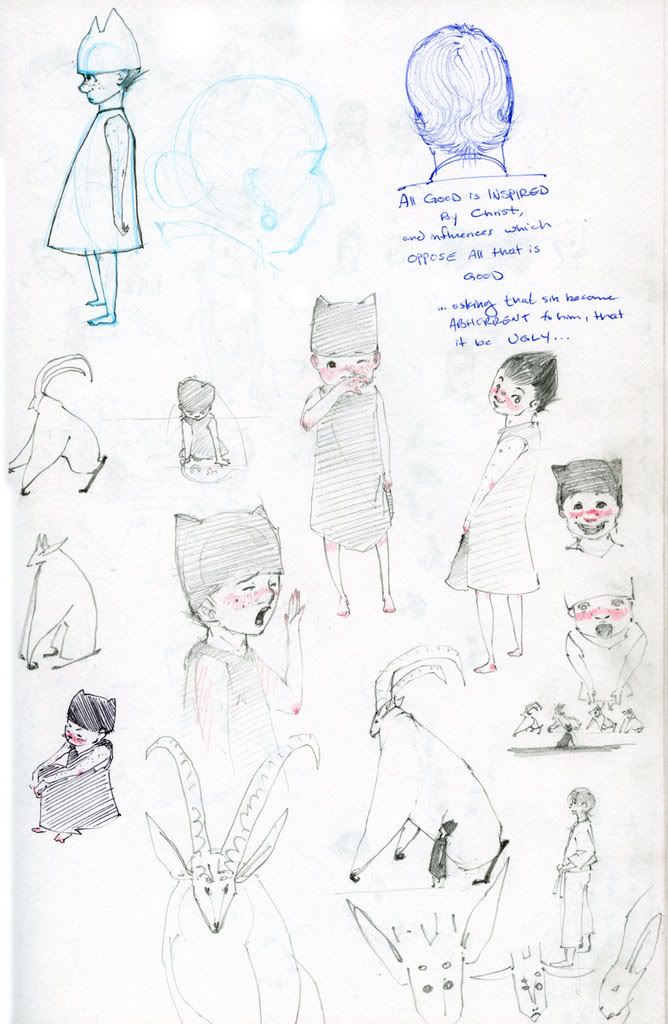 All GOOD is INSPIRED
By Christ,
and influences which
OPPOSE All that is
GOOD
... asking that sin become
ABHORRENT to him, that
it be UGLY...